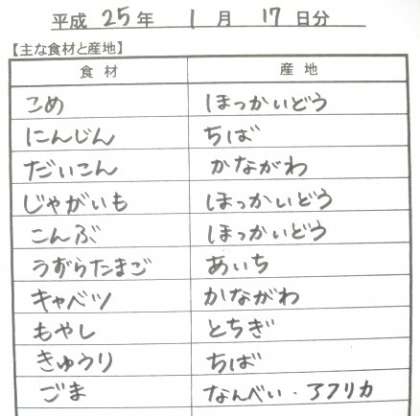 平成 25 年 1 月 17 日分
【主な食材と産地】
食材 産地
こめ ほっかいどう
にんじん ちば
だいこん かながわ
じゃがいも ほっかいどう
こんぶ ほっかいどう
うずらたまご あいち
キャベツ かながわ
もやし とちぎ
きゅうり ちば
ごま なんべい・アフリカ